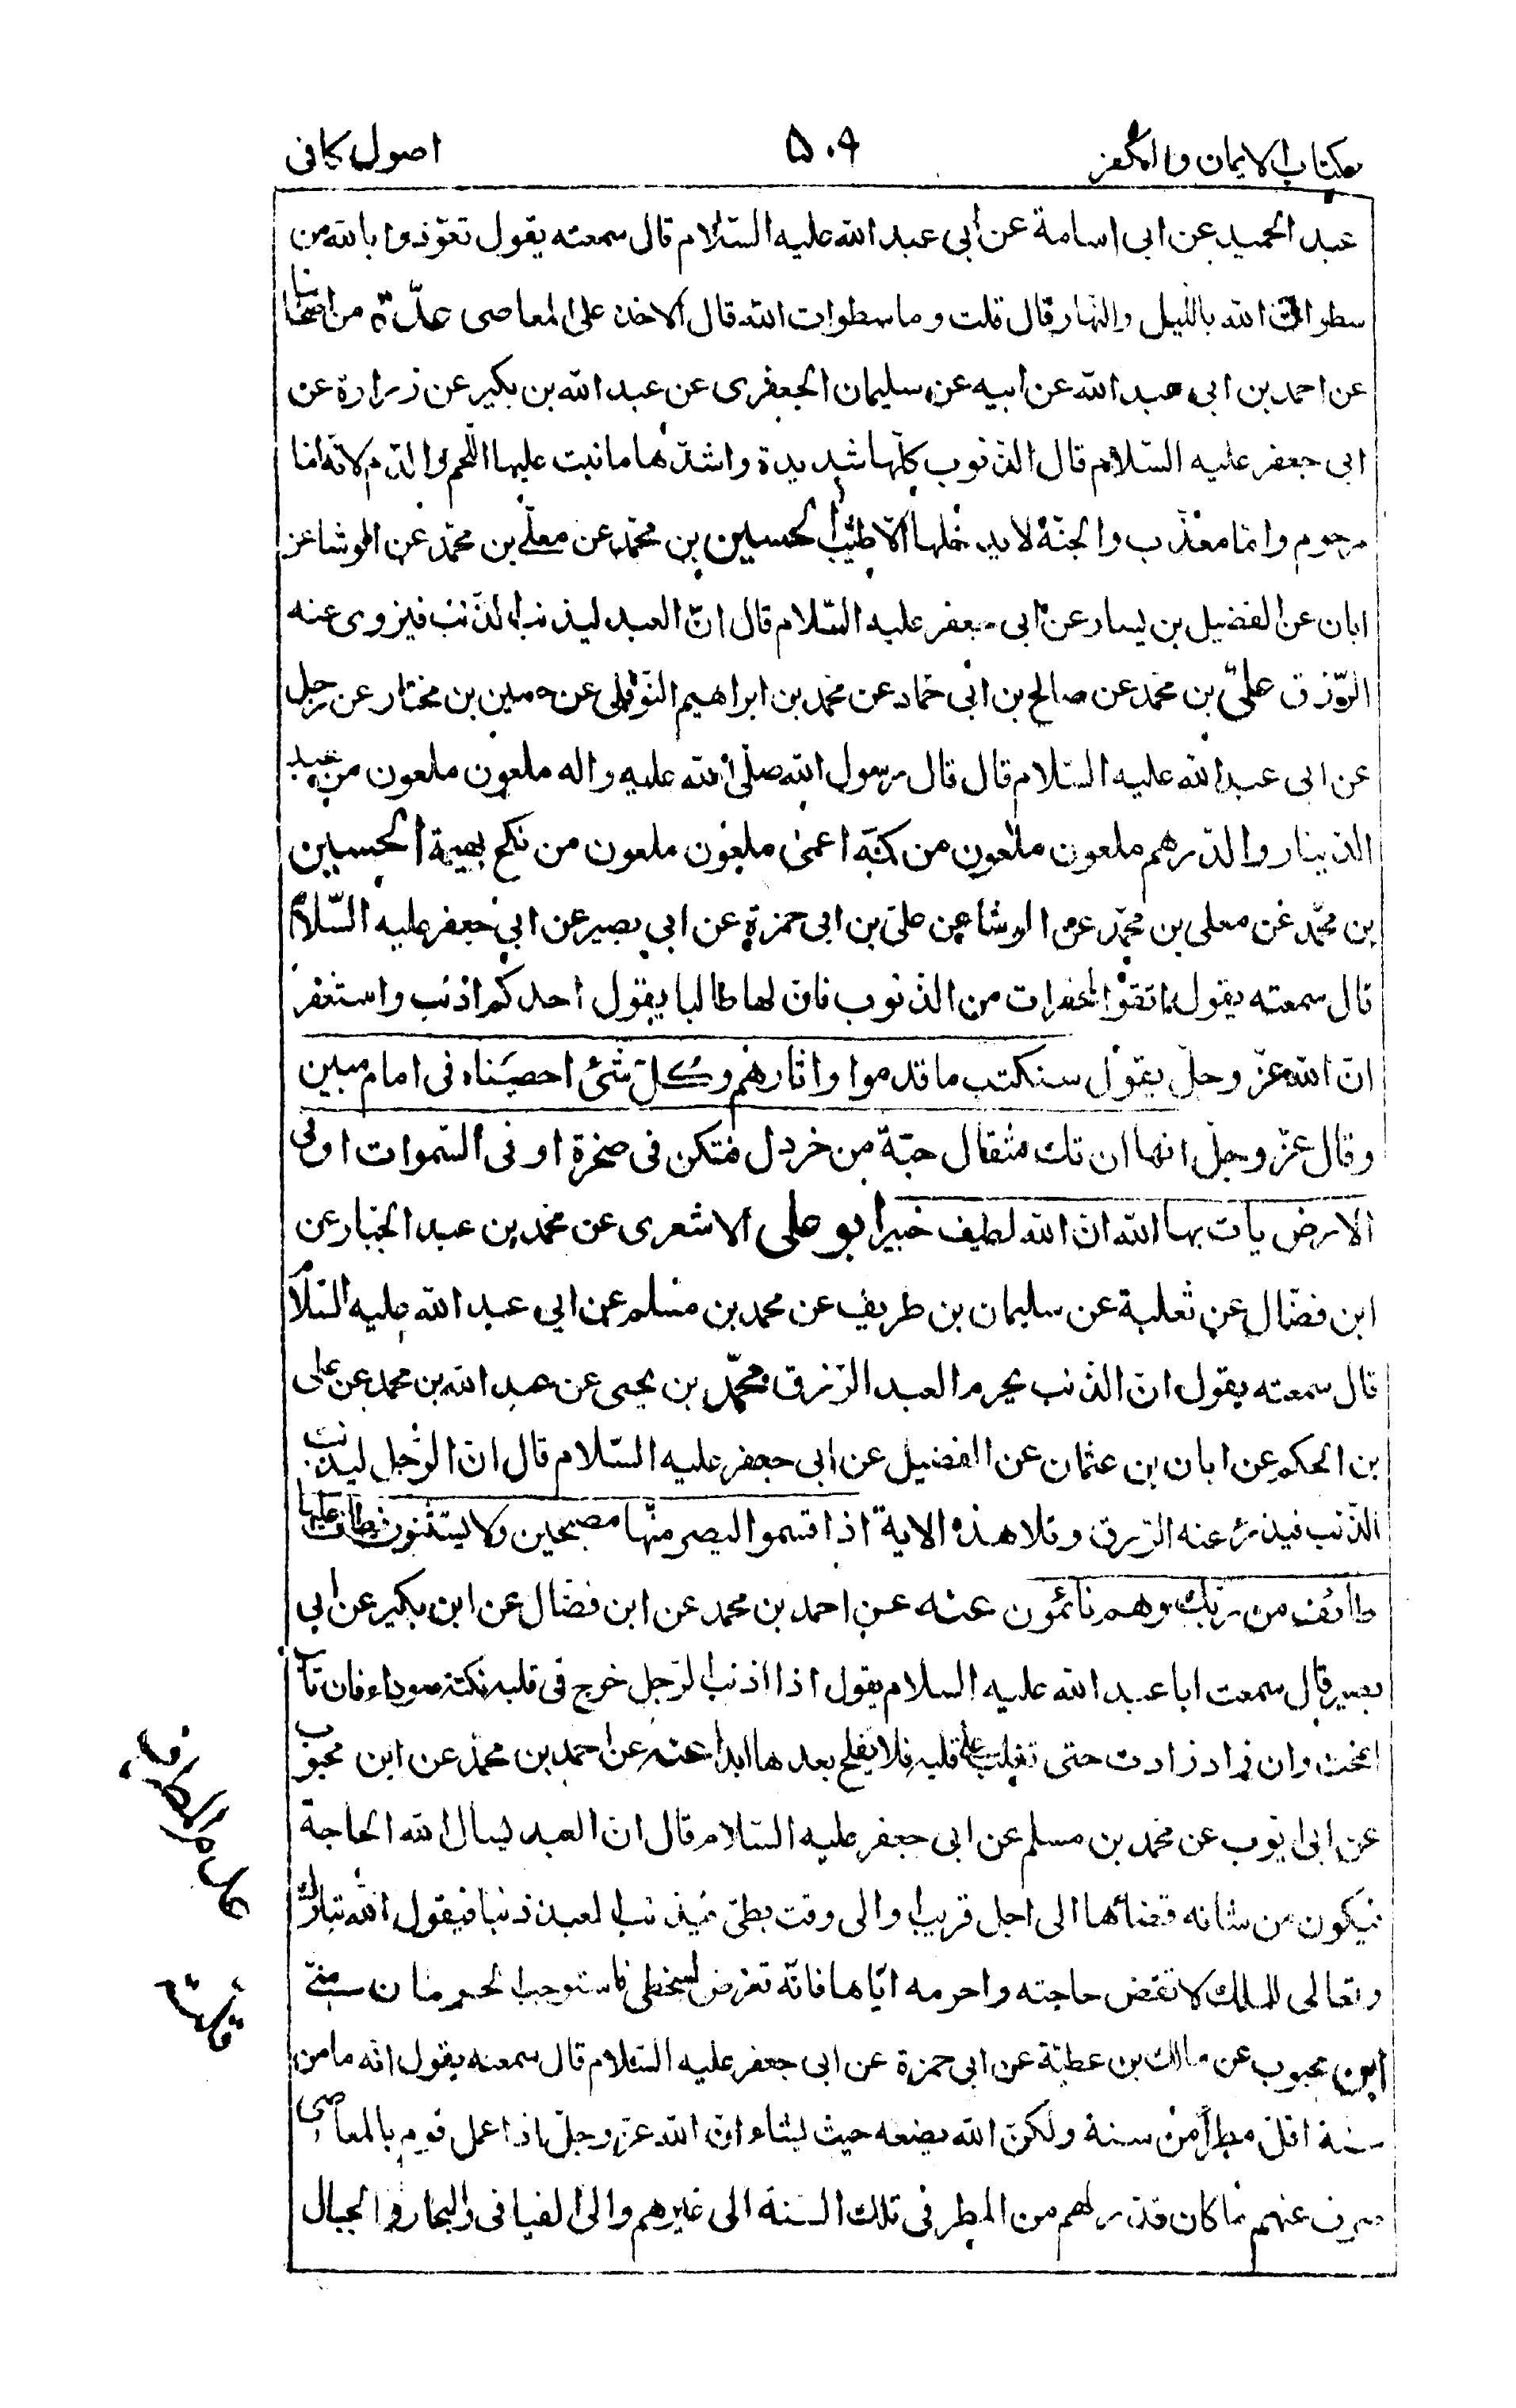 كتاب الايمان والكفر ۵۰۹ اصول كافى
عبد الحميد عن ابى اسامة عن أبى عبد الله عليه السّلام قال سمعته يقول تعوّذوا بالله من
سطوات الله بالليل والنّهار قال قلت وما سطوات الله قال الاخذ على المعاصى عدّة من اصحابنا
عن احمد بن ابى عبد الله عن ابيه عن سليمان الجعفرى عن عبد الله بن بكير عن زرارة عن
ابى جعفر عليه السّلام قال الذنوب كلّها شديدة واشدّها ما نبت عليها اللّحم والدّم لانّه امّا
مرحوم وامّا معذّب والجنّة لا يدخلها الّا طيّب الحسين بن محمّد عن معلّى بن محمّد عن الوشا عن
ابان عن الفضيل بن يسار عن أبى جعفر عليه السّلام قال انّ العبد ليذنب الذّنب فيزوى عنه
الرّزق علىّ بن محمد عن صالح بن ابى حماد عن محمد بن ابراهيم النّوفلى عن حسين بن مختار عن رجل
عن ابى عبد الله عليه السّلام قال قال رسول الله صلّى الله عليه واله ملعون ملعون من عبد
الدّينار والدّرهم ملعون ملعون من كمّه اعمى ملعون ملعون من نكح بهيمة الحسين
بن محمّد عن معلى بن محمّد عن الوشا عن على بن ابى حمزة عن ابى بصير عن ابى جعفر عليه السّلام
قال سمعته يقول اتقوا المحقرات من الذّنوب فان لها طالبا يقول احدكم اذنب واستغفر
انّ الله عزّ وجلّ يقول سنكتب ما قدموا واثارهم وكلّ شئ احصيناه فى امام مبين
وقال عزّ وجلّ انها ان تك مثقال حبّة من خردل فتكن فى صخرة او فى السّموات او فى
الارض يات بها الله انّ الله لطيف خبير ابو على الاشعرى عن محمد بن عبد الجبّار عن
ابن فضّال عن ثعلبة عن سليمان بن طريف عن محمد بن مسلم عن ابى عبد الله عليه السّلام
قال سمعته يقول انّ الذّنب يحرم العبد الرّزق محمّد بن يحيى عن عبد الله بن محمد عن على
بن الحكم عن ابان بن عثمان عن الفضيل عن ابى جعفر عليه السّلام قال انّ الرّجل ليذنب
الذّنب فيدرئ عنه الرّزق وتلا هذه الاية اذ اقسموا ليصرمنّها مصبحين ولا يستثنون فطاف عليها
طائف من ربّك وهم نائمون عنه عن احمد بن محمد عن ابن فضّال عن ابن بكير عن ابى
بصير قال سمعت ابا عبد الله عليه السلام يقول اذا اذنب الرّجل خرج فى قلبه نكتة سوداء فان تاب
انمحت وان زاد زادت حتى تغلب على قلبه فلا يفلح بعدها ابدا عنه عن احمد بن محمّد عن ابن محبوب
عن ابى ايّوب عن محمد بن مسلم عن ابى جعفر عليه السّلام قال انّ العبد ليسال الله الحاجة
فيكون من شانه قضائها الى اجل قريب او الى وقت بطئ فيذنب العبد ذنبا فيقول الله تبارك
وتعالى للملك لا تقض حاجته واحرمه ايّاها فانّه تعرّض لسخطى فاستوجب الحرمان منّى
ابن محبوب عن مالك بن عطيّة عن ابى حمزة عن ابى جعفر عليه السّلام قال سمعته يقول انّه ما من
سنة اقلّ مطراً من سنة ولكنّ الله يضعه حيث يشاء انّ الله عزّ وجلّ اذا عمل قوم بالمعاصى
صرف عنهم ما كان قدّر لهم من المطر فى تلك السّنة الى غيرهم والى الفيافى والبحار والجبال